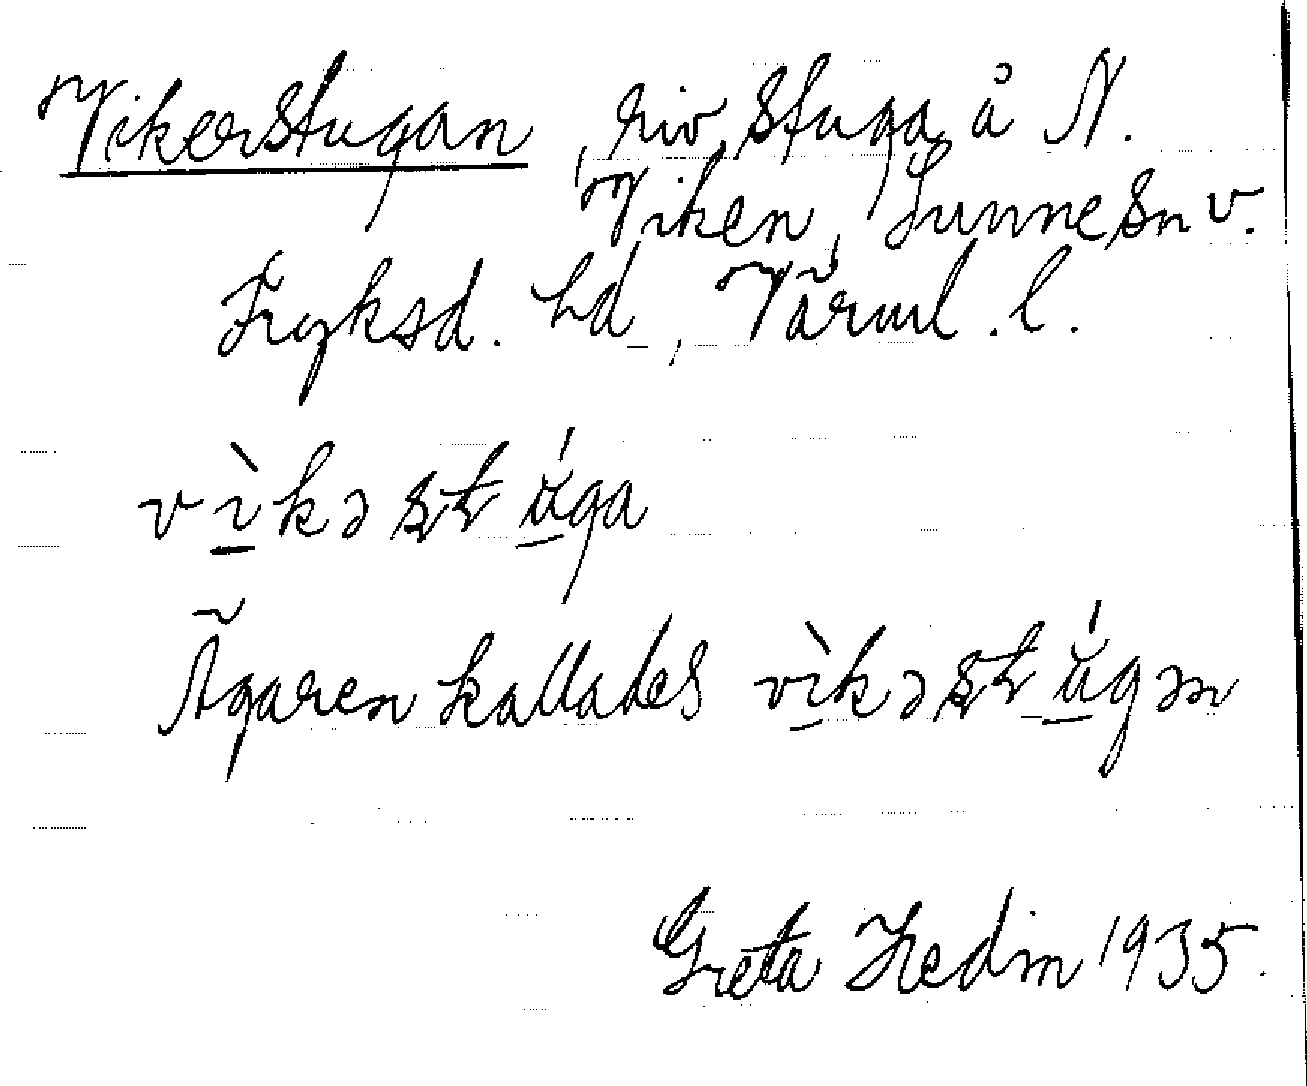 Vikerstugan, riv. stuga å N.
Viken, Sunne sn v.
Fryksd. hd, Värml. l.
vìkəstúga
Ägaren kallades vìkəstúgən
Greta Hedin 1935.